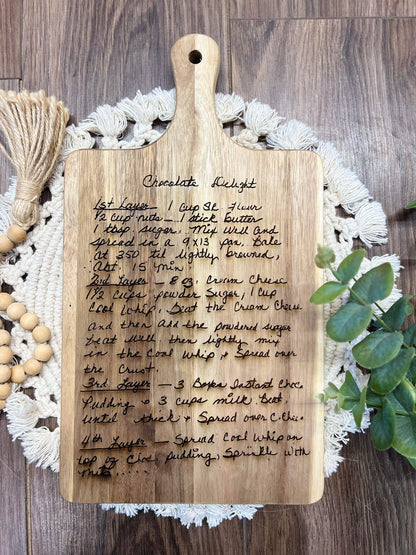 Chocolate Delight
1st Layer - 1 cup SR Flour
1/2 cup nuts - 1 stick butter
1 tbsp sugar. Mix well and
spread in a 9x13 pan. Bake
at 350 til lightly browned,
Abt. 15 min
2nd Layer - 8 oz. Cream Cheese
1 1/2 cups powder Sugar, 1 cup
Cool Whip. Beat the Cream Cheese
and then add the powdered sugar
beat well then lightly mix
in the Cool Whip & Spread over
the Crust.
3rd Layer - 3 Boxes Instant Choc
Pudding & 3 cups milk. Beat
until thick & Spread over C. Chee.
4th Layer - Spread Cool Whip on
top of Choc pudding, Sprinkle with
nuts.....